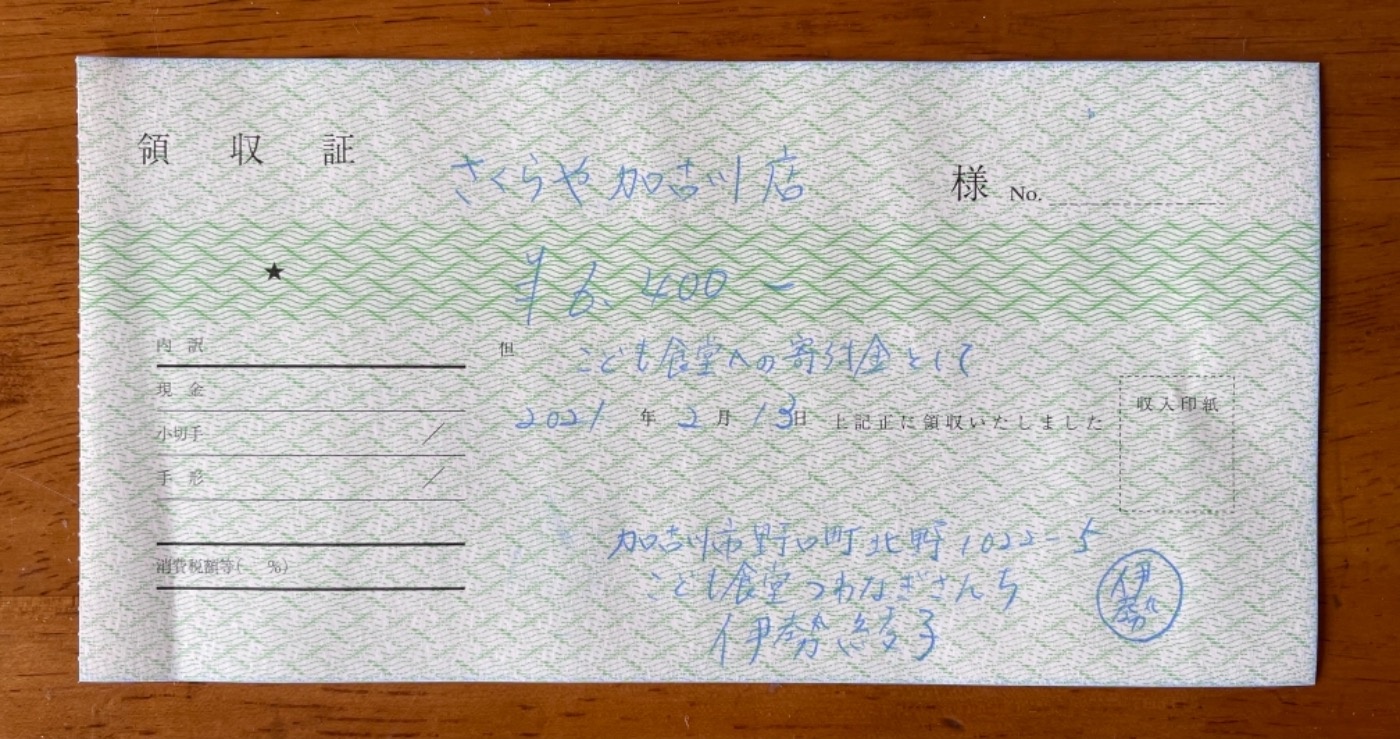 領収証
さくらや加古川店 様 No.
★ ¥6,400ー
内訳
但 こども食堂への寄付金として
現金
2021年2月13日 上記正に領収いたしました
収入印紙
小切手 ／
手形 ／
加古川市野口町北野1022-5
消費税額等( %)
こども食堂つわなぎさんち
伊勢
伊勢 子